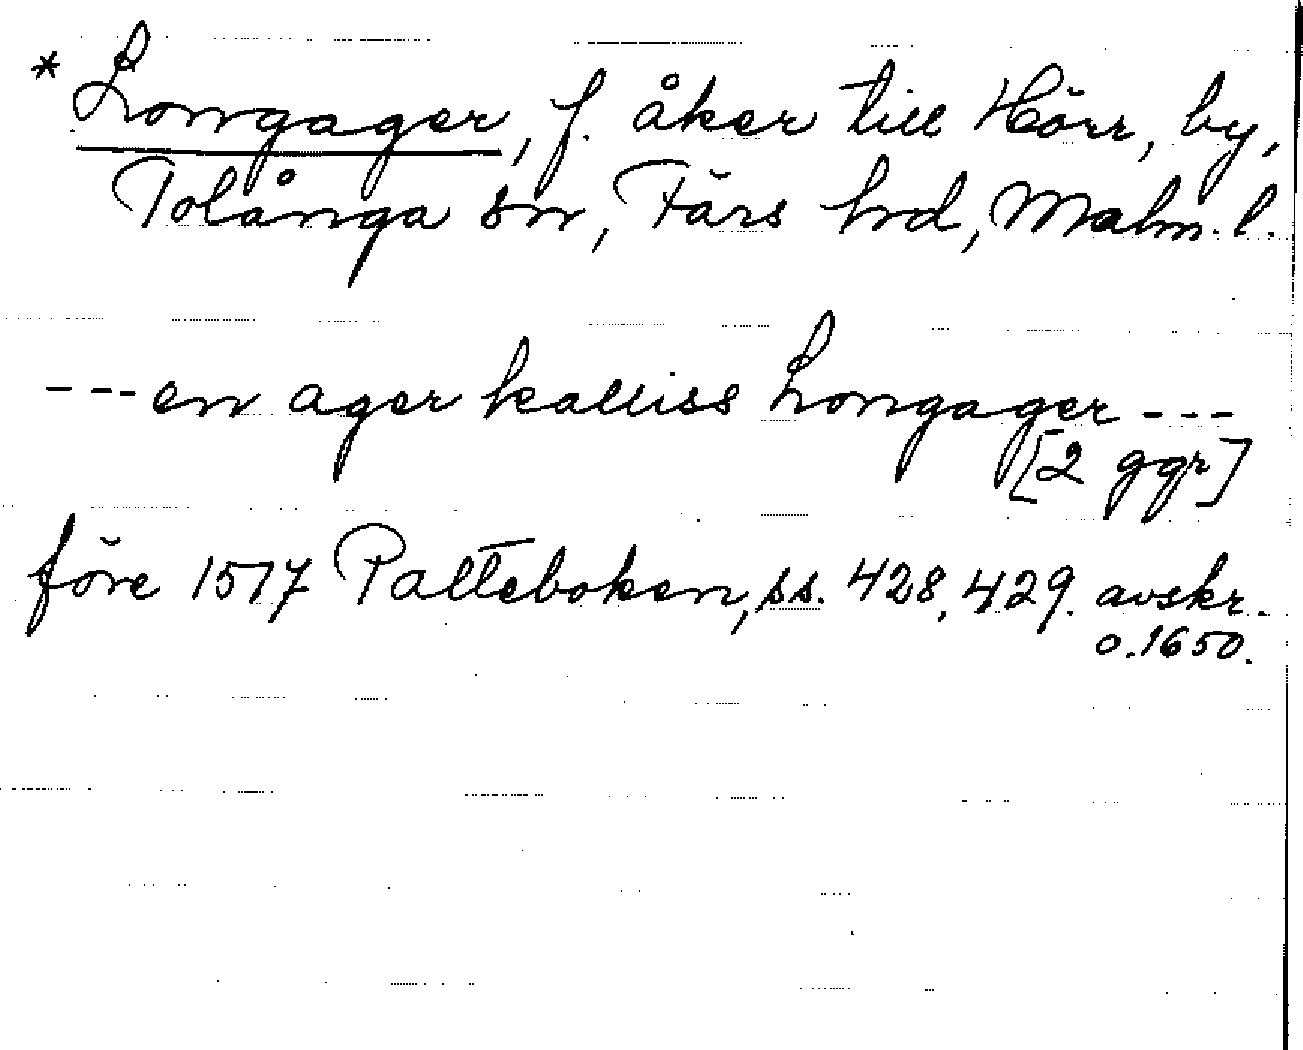 * Longager, f. åker till Hörr, by,
Tolånga sn, Färs hrd, Malm. l.
--- en ager kalliss Longager ---
[2 ggr]
före 1517 Palteboken, ss. 428, 429. avskr.
o. 1650.